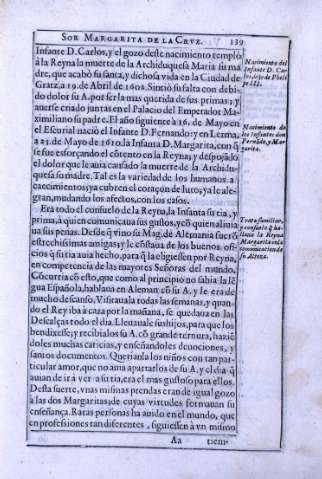 SOR MARGARITA DE LA CRVZ. 139
Infante D. Carlos, y el gozo deste nacimiento templò
à la Reyna la muerte de la Archiduquesa Maria su ma
dre, que acabò su santa, y dichosa vida en la Ciudad de
Gratz, a 19. de Abril de 1608. Sintiò su falta con debi-
do dolor su A. por ser la mas querida de sus primas; y
auerse criado juntas en el Palacio del Emperador Ma-
ximiliano su padre. El año siguiente à 16. de Mayo en
el Escurial naciò el Infante D. Fernando: y en Lerma,
à 25. de Mayo de 1610. la Infanta D. Margarita, con q̃
se fue esforçando el cõtento en la Reyna; y despojado
el dolor que le auia causado la muerte de la Archidu-
quesa su madre. Tal es la variedad de los humanos a-
caecimientos; ya cubren el coraçon de luto, ya le ale-
gran, mudando los afectos, con los casos.
Era todo el consuelo de la Reyna, la Infanta su tia, y
prima, à quien comunicaua sus gustos, y cõ quien aliuia
ua sus penas. Desde q̃ vino su Mag. de Alemania fuerõ
estrechissimas amigas; y le cõstaua de los buenos ofi-
cios q̃ su tia auia hecho, para q̃ la eligiessen por Reyna,
en competencia de las mayores Señoras del mundo.
Cõcurria cõ esto, que como al principio no sabia la lẽ
gua Española, hablaua en Aleman cõ su A. y le era de
mucho descanso. Visitauala todas las semanas, y quan-
do el Rey iba à caza por la mañana, se quedaua en las
Descalças todo el dia. Lleuauale sus hijos, para que los
bendixesse; y recibialos su A. cõ grande ternura, haziẽ
doles muchas caricias, y enseñandoles deuociones, y
santos documentos. Querianla los niños con tan par-
ticular amor, que no auia apartarlos de su A. y el dia q̃
auian de irà ver a su tia, era el mas gustoso para ellos.
Desta suerte, vnas mismas prendas eran de igual gozo
à las dos Margaritas; de cuyas virtudes formauan su
enseñança. Raras personas ha auido en el mundo, que
en professiones tan diferentes, siguiessen à vn mismo
Aa tiem-
Nacimiento del
Infante D. Car
los, hijo de Pheli
pe III.
Nacimiento de
los Infantes don
Fernãdo, y Mar
garita.
Trato familiar,
y consuelo q̃ ha-
llaua la Reyna
Margarita en la
comunicacion de
su Alteza.